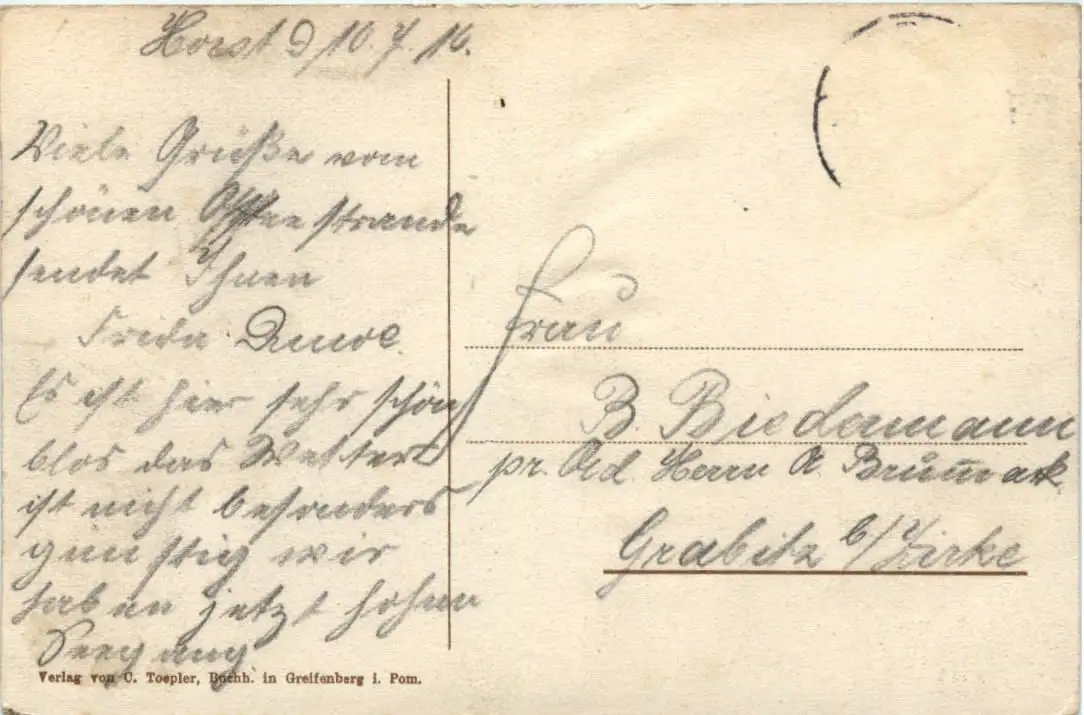 Horst d 10.7.16.
Viele Grüße vom
schönen Ostseestrande
sendet Ihnen
Frida
Es ist hier sehr schön
blos das Wetter
ist nicht besonders
günstig wir
haben jetzt hohen
Seegang
Frau
B. Biedermann
pr. Ad. Herrn A.
Grabitz b/Zirke
Verlag von C. Toepler, Buchh. in Greifenberg i. Pom.